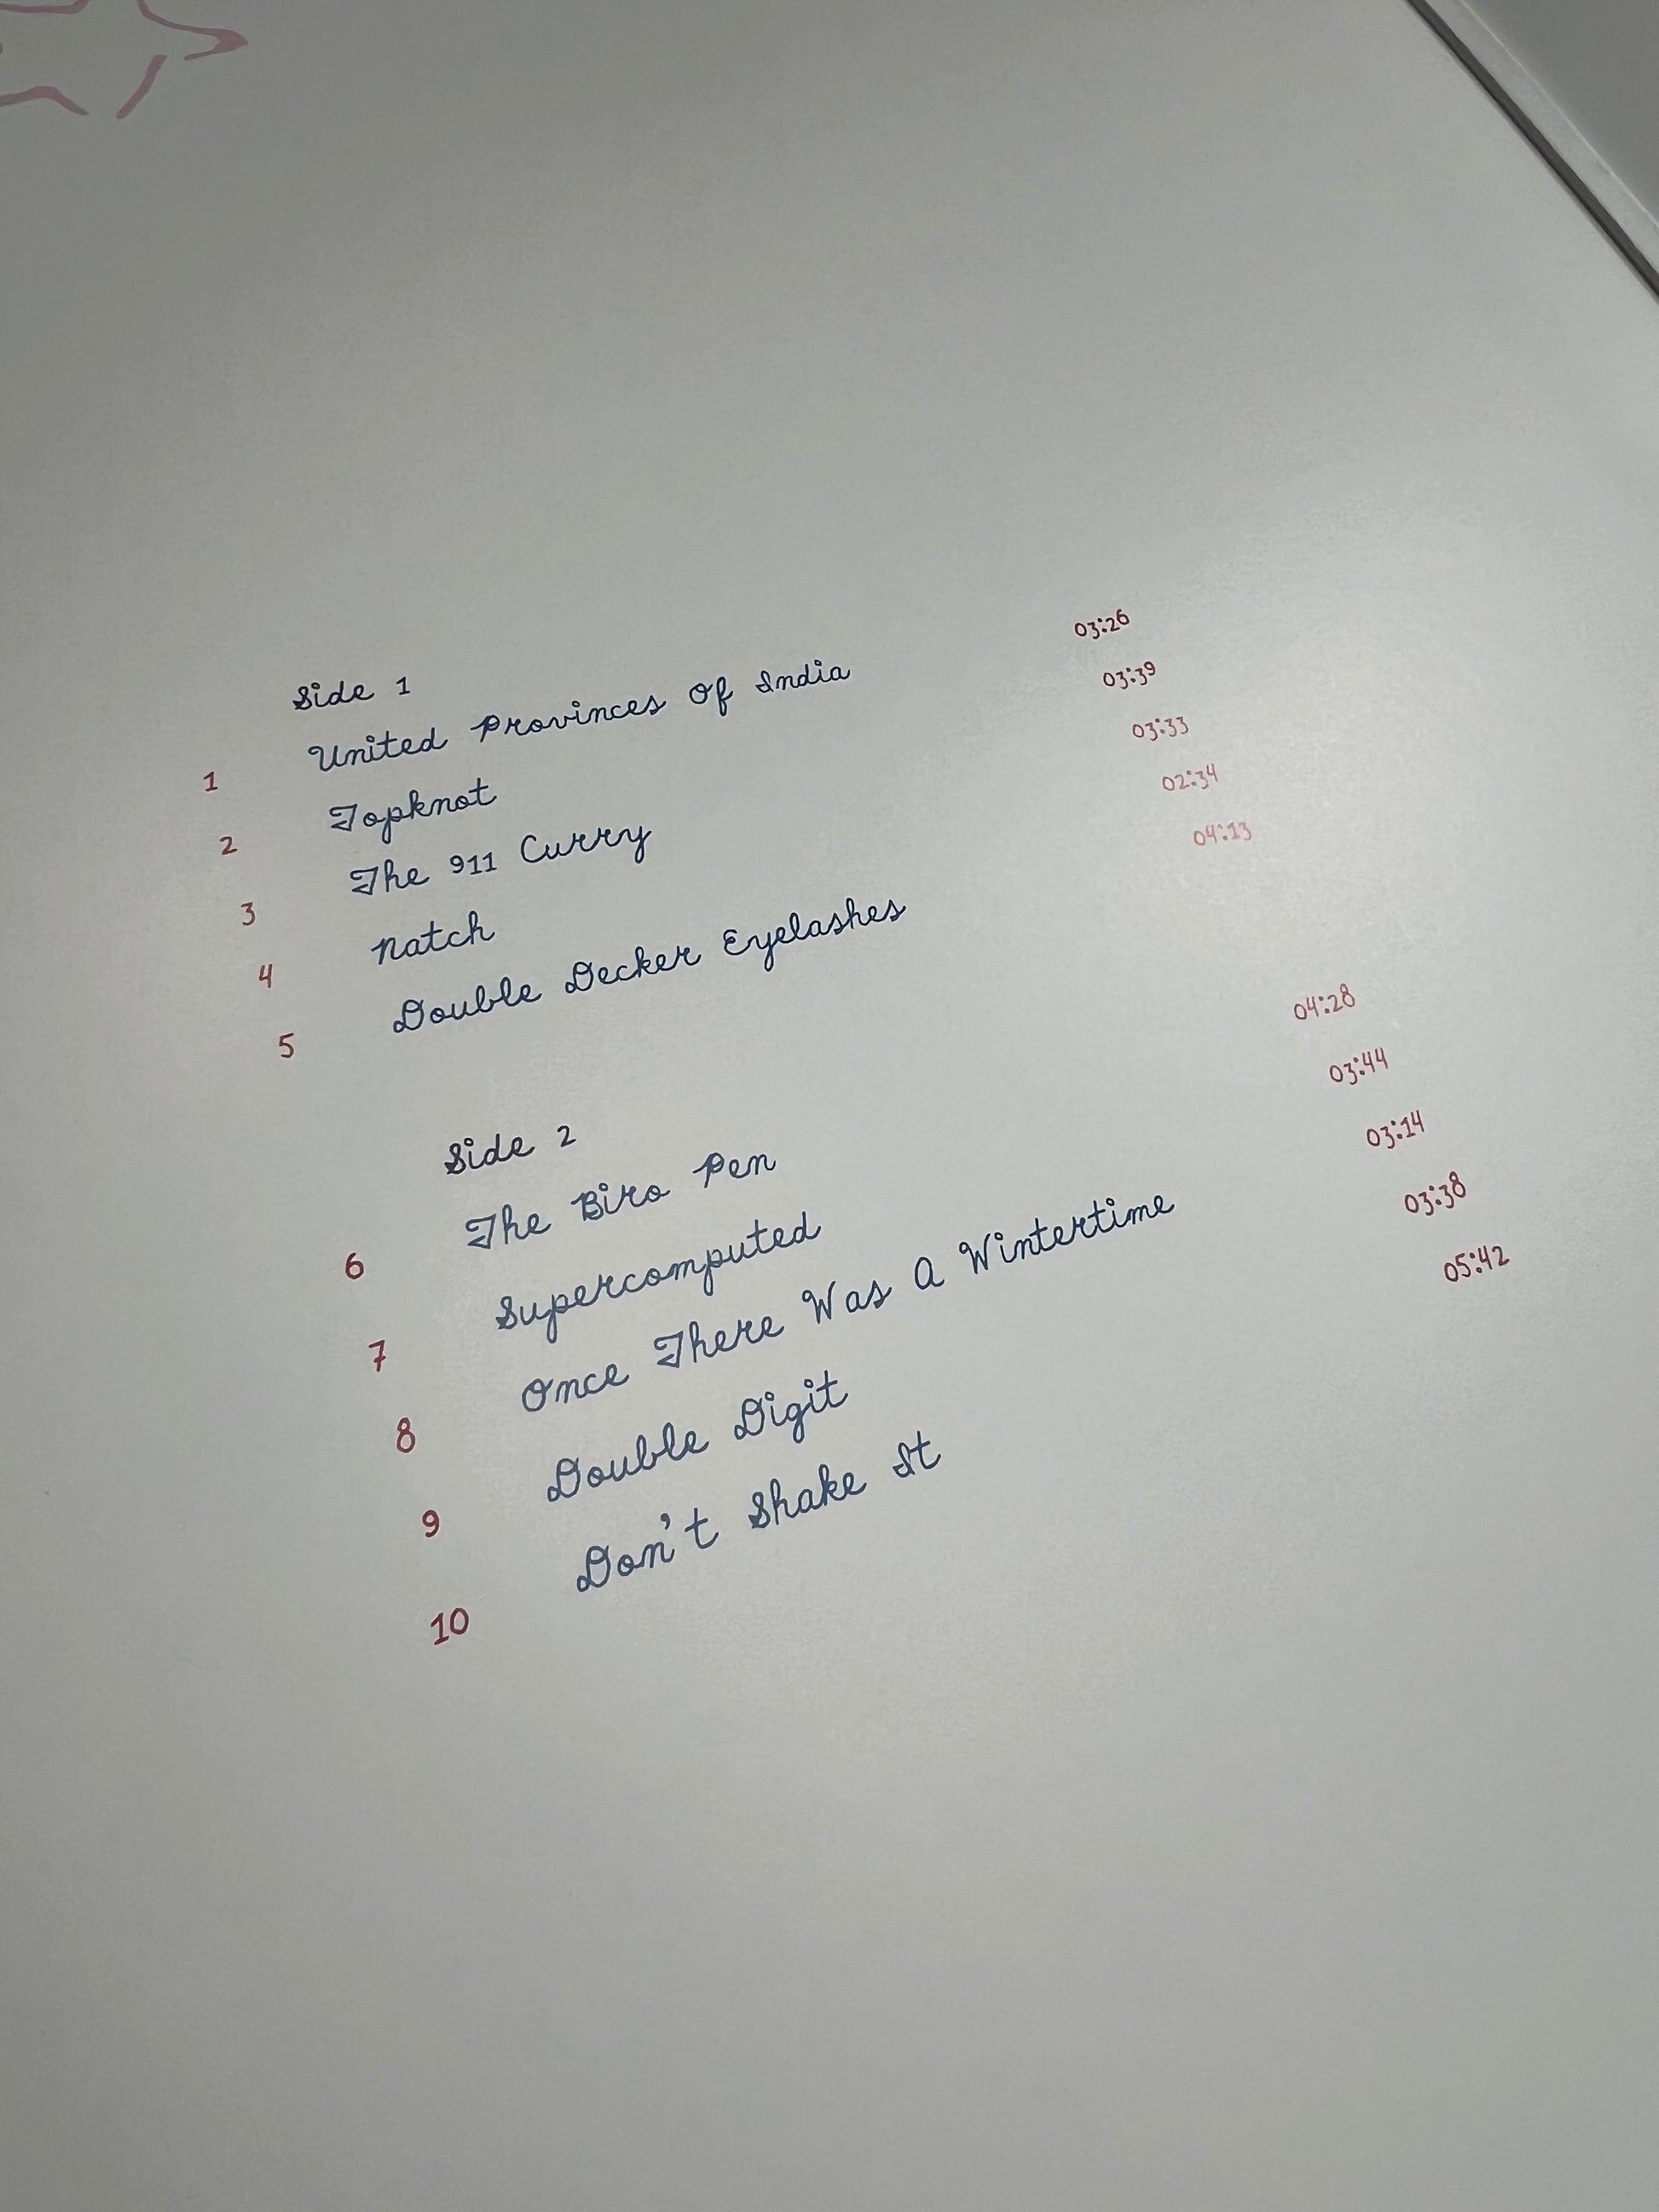 Side 1
1 United Provinces Of India 03:26
2 Topknot 03:39
3 The 911 Curry 03:33
4 Natch 02:34
5 Double Decker Eyelashes 04:13
Side 2
6 The Biro Pen 04:28
7 Supercomputed 03:44
8 Once There Was A Wintertime 03:14
9 Double Digit 03:38
10 Don't Shake It 05:42